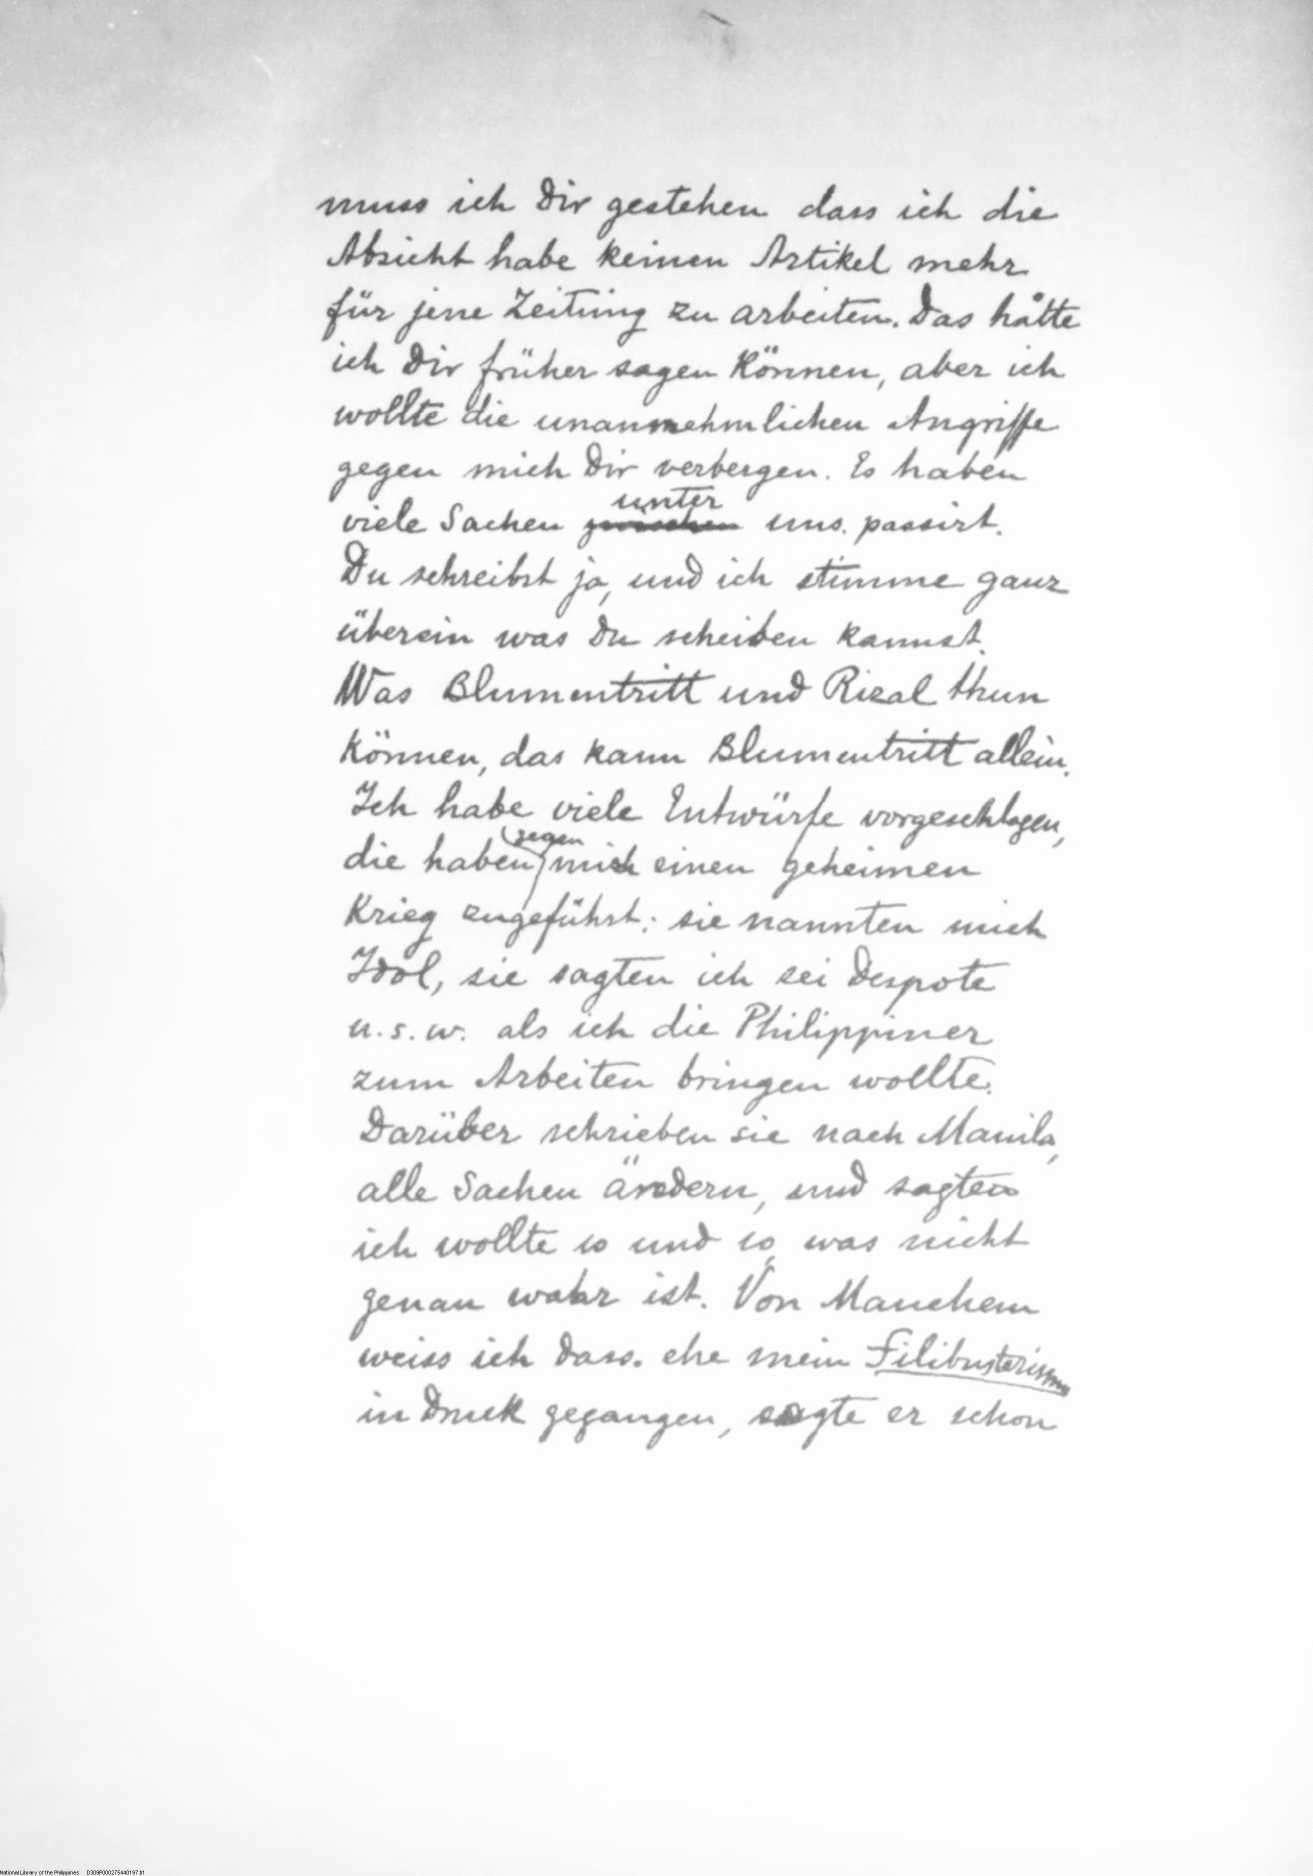 muss ich Dir gestehen dass ich die
Absicht habe keinen Artikel mehr
für jene Zeitung zu arbeiten. Das hätte
ich Dir früher sagen können, aber ich
wollte die unannehmlichen Angriffe
gegen mich Dir verbergen. Es haben
viele Sachen zwischen unter uns. passirt.
Du schreibst ja, und ich stimme ganz
überein was Du scheiben kannst.
Was Blumentritt und Rizal thun
können, das kann Blumentritt allein.
Ich habe viele Entwürfe vorgeschlagen,
die haben gegen mich einen geheimen
Krieg zugeführt: sie nannten mich
Idol, sie sagten ich sei Despote
u. s. w. als ich die Philippiner
zum Arbeiten bringen wollte.
Darüber schrieben sie nach Manila,
alle Sachen ändern, und sagten
ich wollte so und so, was nicht
genau wahr ist. Von Manchem
weiss ich dass. ehe mein Filibusterismo
in Druck gegangen, sagte er schon
National Library of the Philippines D309P000275440197.tif